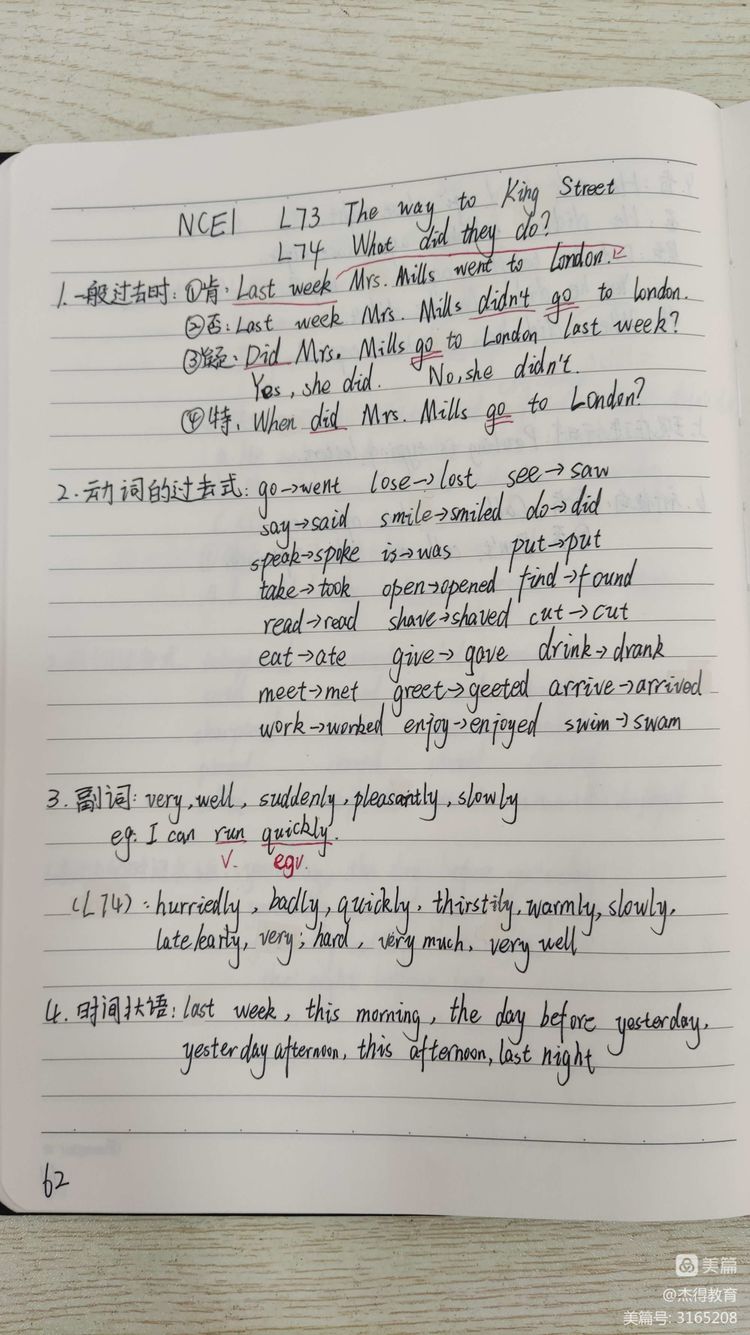 NCE1 L73 The way to King Street
L74 What did they do?
1.一般过去时:①肯:Last week Mrs. Mills went to London.
②否:Last week Mrs. Mills didn't go to London.
③疑:Did Mrs. Mills go to London last week?
Yes, she did. No, she didn't.
④特:When did Mrs. Mills go to London?
2.动词的过去式:go→went lose→lost see→saw
say→said smile→smiled do→did
speak→spoke is→was put→put
take→took open→opened find→found
read→read shave→shaved cut→cut
eat→ate give→gave drink→drank
meet→met greet→geeted arrive→arrived
work→worked enjoy→enjoyed swim→swam
3.副词:very, well, suddenly, pleasantly, slowly
eg: I can run quickly.
v. egv.
(L74):hurriedly, badly, quickly, thirstily, warmly, slowly,
late/early, very; hard, very much, very well
4.时间状语:last week, this morning, the day before yesterday,
yesterday afternoon, this afternoon, last night
62
美篇
@杰得教育
美篇号: 3165208